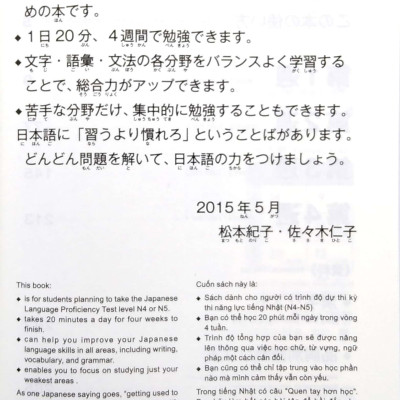 めの本です。
◆ 1日20分、4週間で勉強できます。
◆ 文字・語彙・文法の各分野をバランスよく学習する
ことで、総合力がアップできます。
◆ 苦手な分野だけ、集中的に勉強することもできます。
日本語に「習うより慣れろ」ということばがあります。
どんどん問題を解いて、日本語の力をつけましょう。
2015年5月
松本紀子・佐々木仁子
This book:
◆ is for students planning to take the Japanese
Language Proficiency Test level N4 or N5.
◆ takes 20 minutes a day for four weeks to
finish.
◆ can help you improve your Japanese
language skills in all areas, including writing,
vocabulary, and grammar.
◆ enables you to focus on studying just your
weakest areas .
As one Japanese saying goes, "getting used to
Cuốn sách này là:
◆ Sách dành cho người có trình độ dự thi kỳ
thi năng lực tiếng Nhật (N4-N5)
◆ Bạn có thể học 20 phút mỗi ngày trong vòng
4 tuần.
◆ Trình độ tổng hợp của bạn sẽ được nâng
lên thông qua việc học chữ, từ vựng, ngữ
pháp một cách cân đối.
◆ Bạn cũng có thể chỉ tập trung vào học phần
nào mà mình cảm thấy vẫn còn yếu.
Trong tiếng Nhật có câu "Quen tay hơn học".